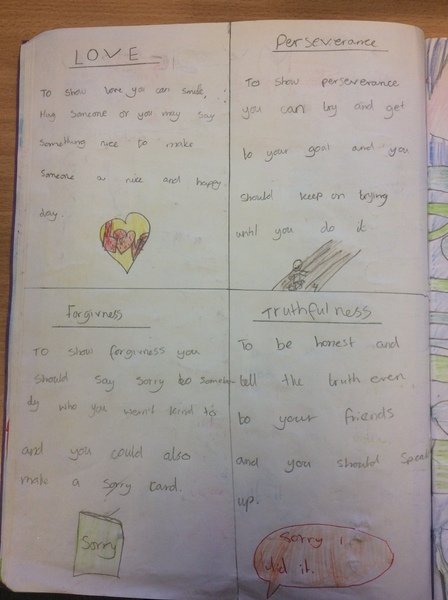 LOVE
To show love you can smile,
Hug someone or you may say
something nice to make
someone a nice and happy
day.
LOVE
Perseverance
To show perseverance
you can try and get
to your goal and you
should keep on trying
until you do it
Forgivness
To show forgivness you
should say sorry to somebo-
dy who you weren't kind to
and you could also
make a sorry card.
Sorry
Truthfulness
To be honest and
tell the truth even
to your friends
and you should speak
up.
Sorry I
did it.